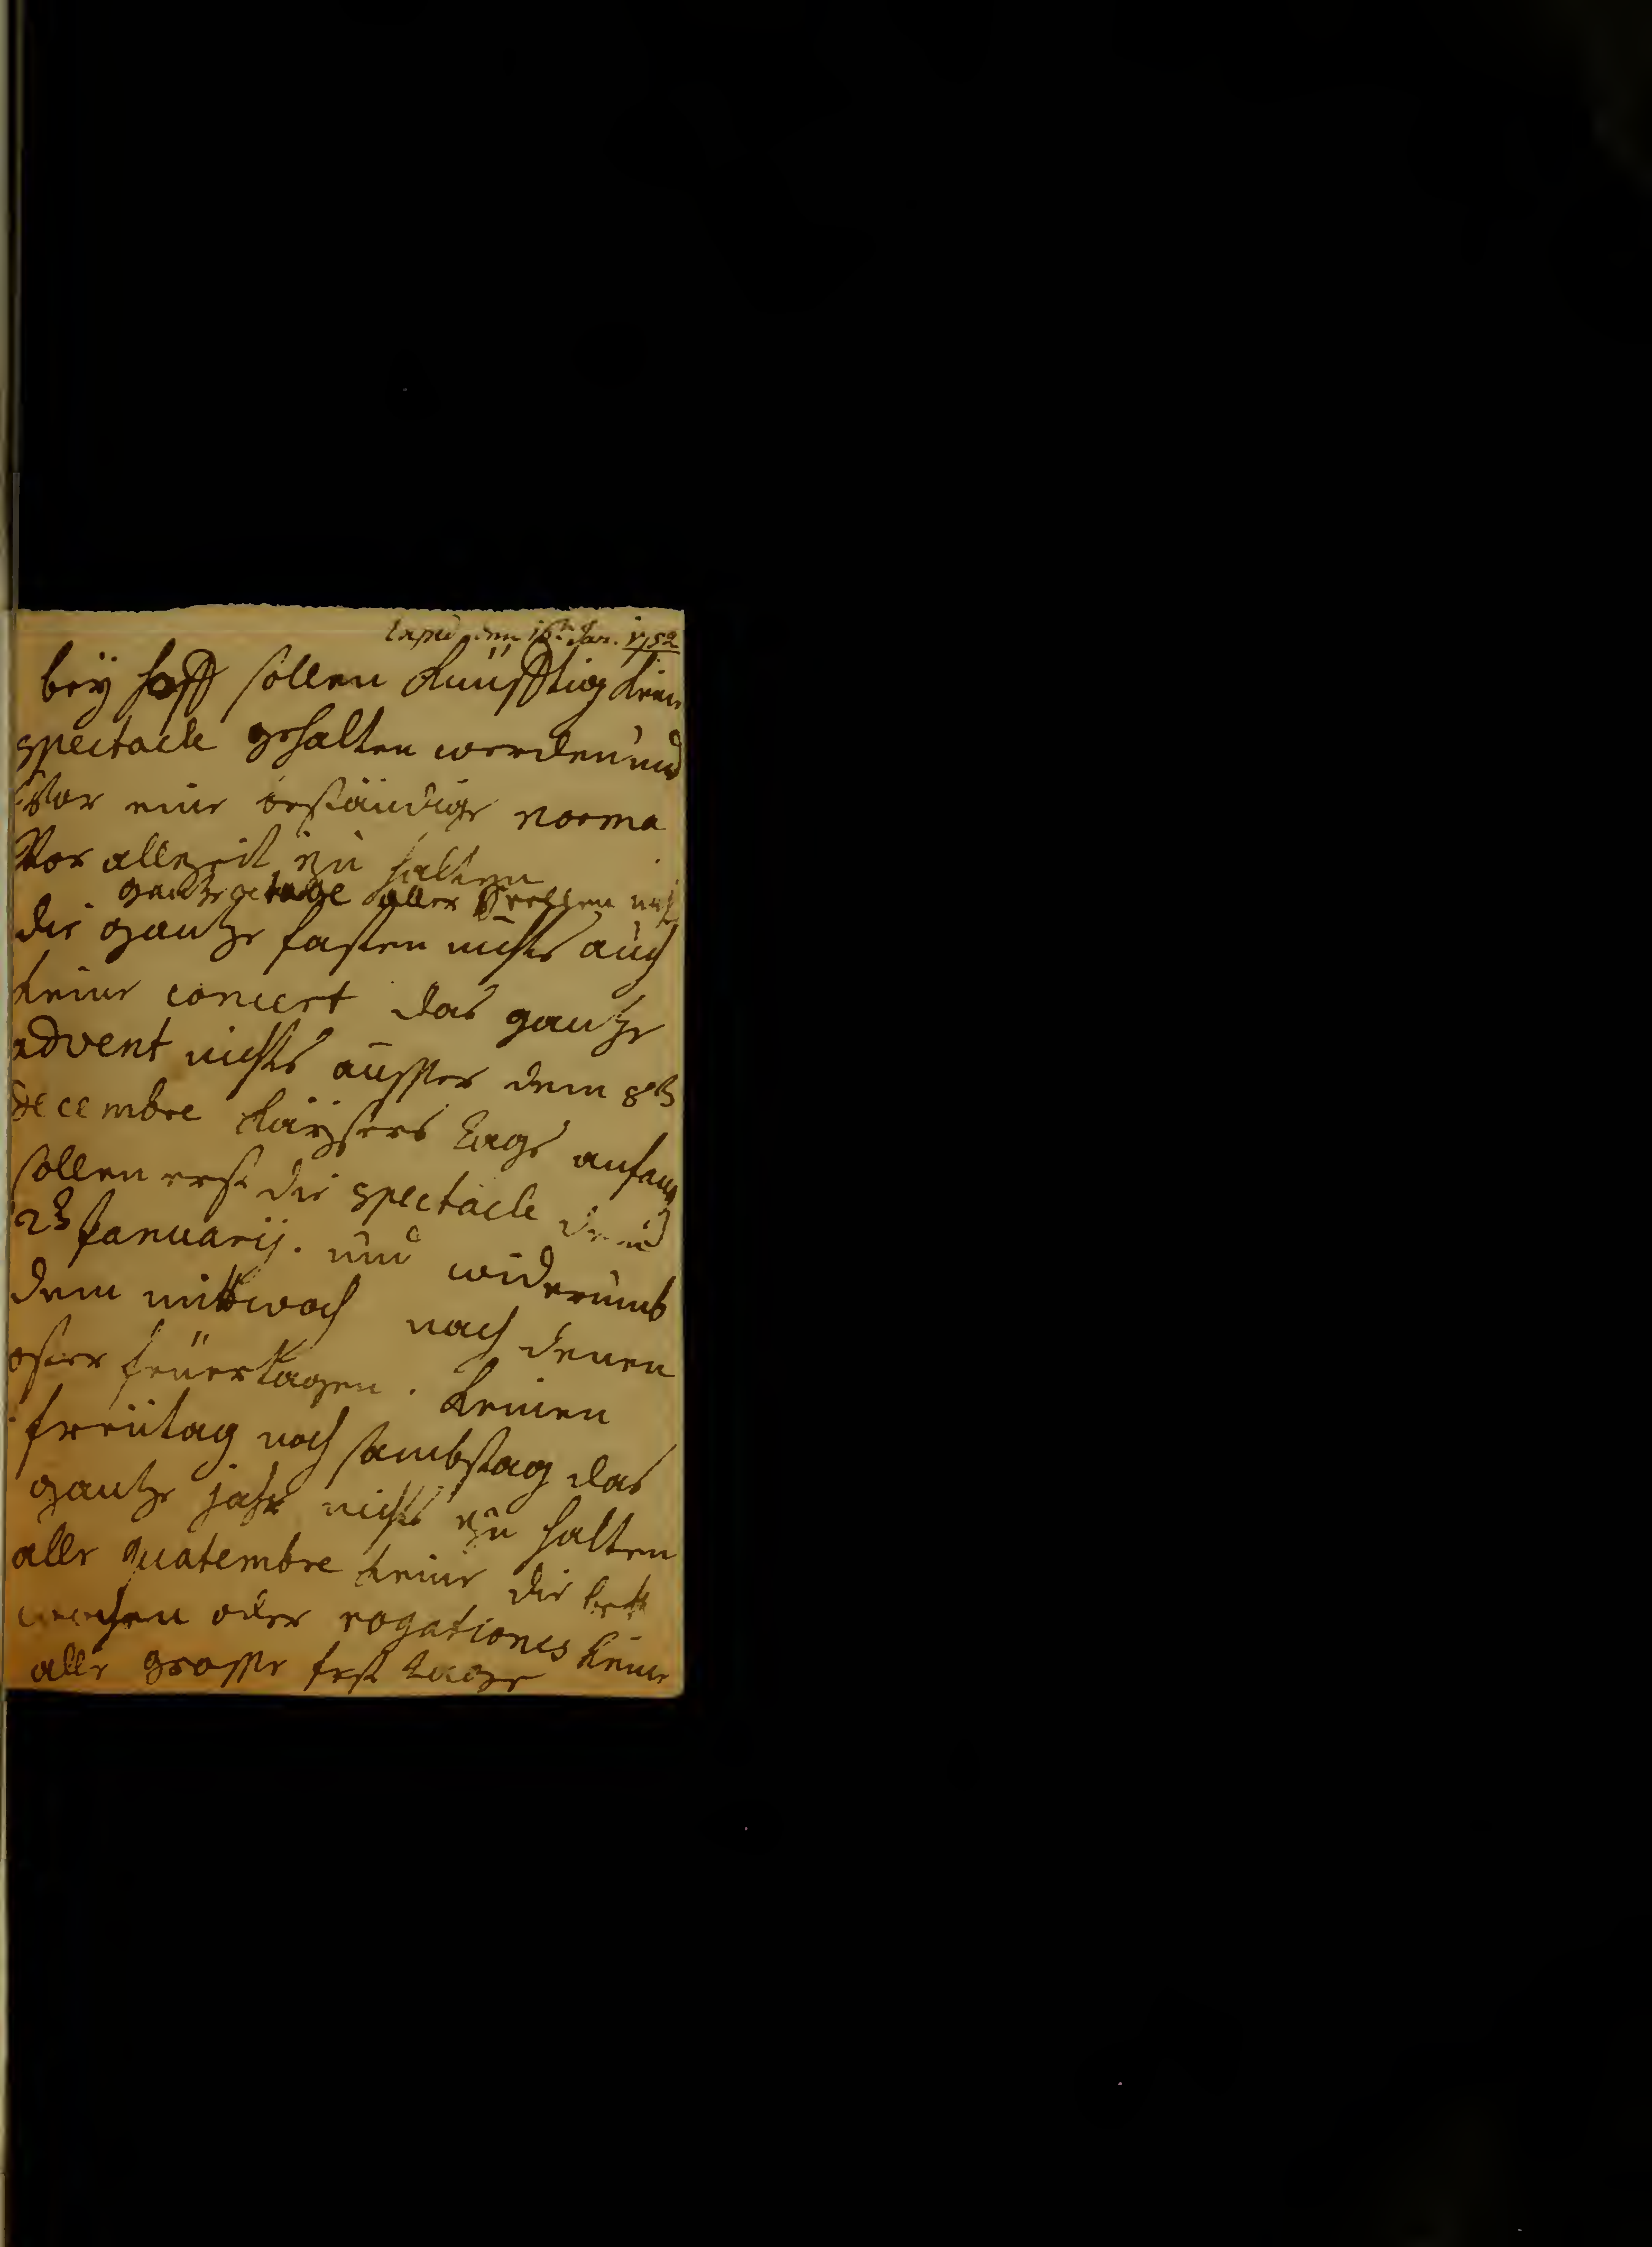 Exped den 16ten Jan. 1752
beÿ hoff sollen künfftig kein
spectacle gehalten werden und
vor eine beständige norma
vor allezeit zu halten
gantze tage aller Seellen nichts
die gantze fasten nichts auch
keine concert das gantze
advent nichts ausser dem 8ten
decembre kaÿsers tags anfang
sollen erst die spectacle den
2ten Januarij. und widerumb
dem mittwoch nach denen
oster feüertagen. keinen
freÿtag noch sambstag das
gantze jahr nichts zu halten
alle quatembre keine die bett
wochen oder rogationes keine
alle grosse fest tage